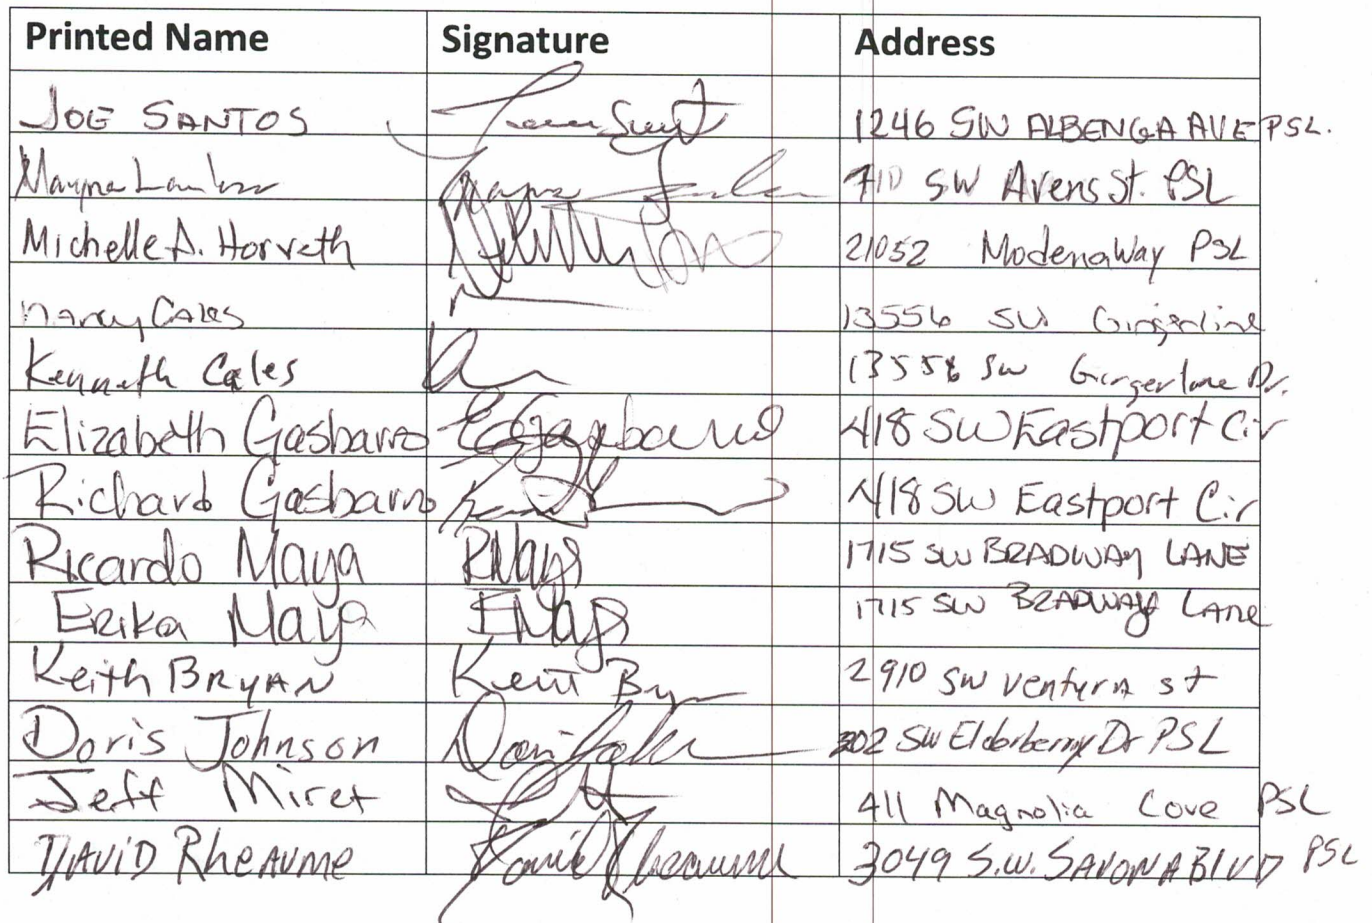 Printed Name Signature Address
JOE SANTOS 1246 SW ALBENGA AVE PSL.
Mayna 710 SW Avens St. PSL
Michelle A. Horveth 21052 Modena Way PSL
Nancy CALES 13556 SW Gingerline
Kenneth Cales 13556 SW Gingerline Dr.
Elizabeth Gasbarro EGasbarro 418 SW Eastport Cir
Richard Gasbarro 418 SW Eastport Cir
Ricardo Maya RMaya 1715 SW BRADWAY LANE
Erika Maya EMaya 1715 SW BRADWAY LANE
Keith BRYAN Keith 2910 SW Ventura st
Doris Johnson 302 SW Elderberry Dr PSL
Jeff Miret 411 Magnolia Cove PSL
DAViD RheAUME David Rheaume 3049 S.W. SAVONA BlVD PSL